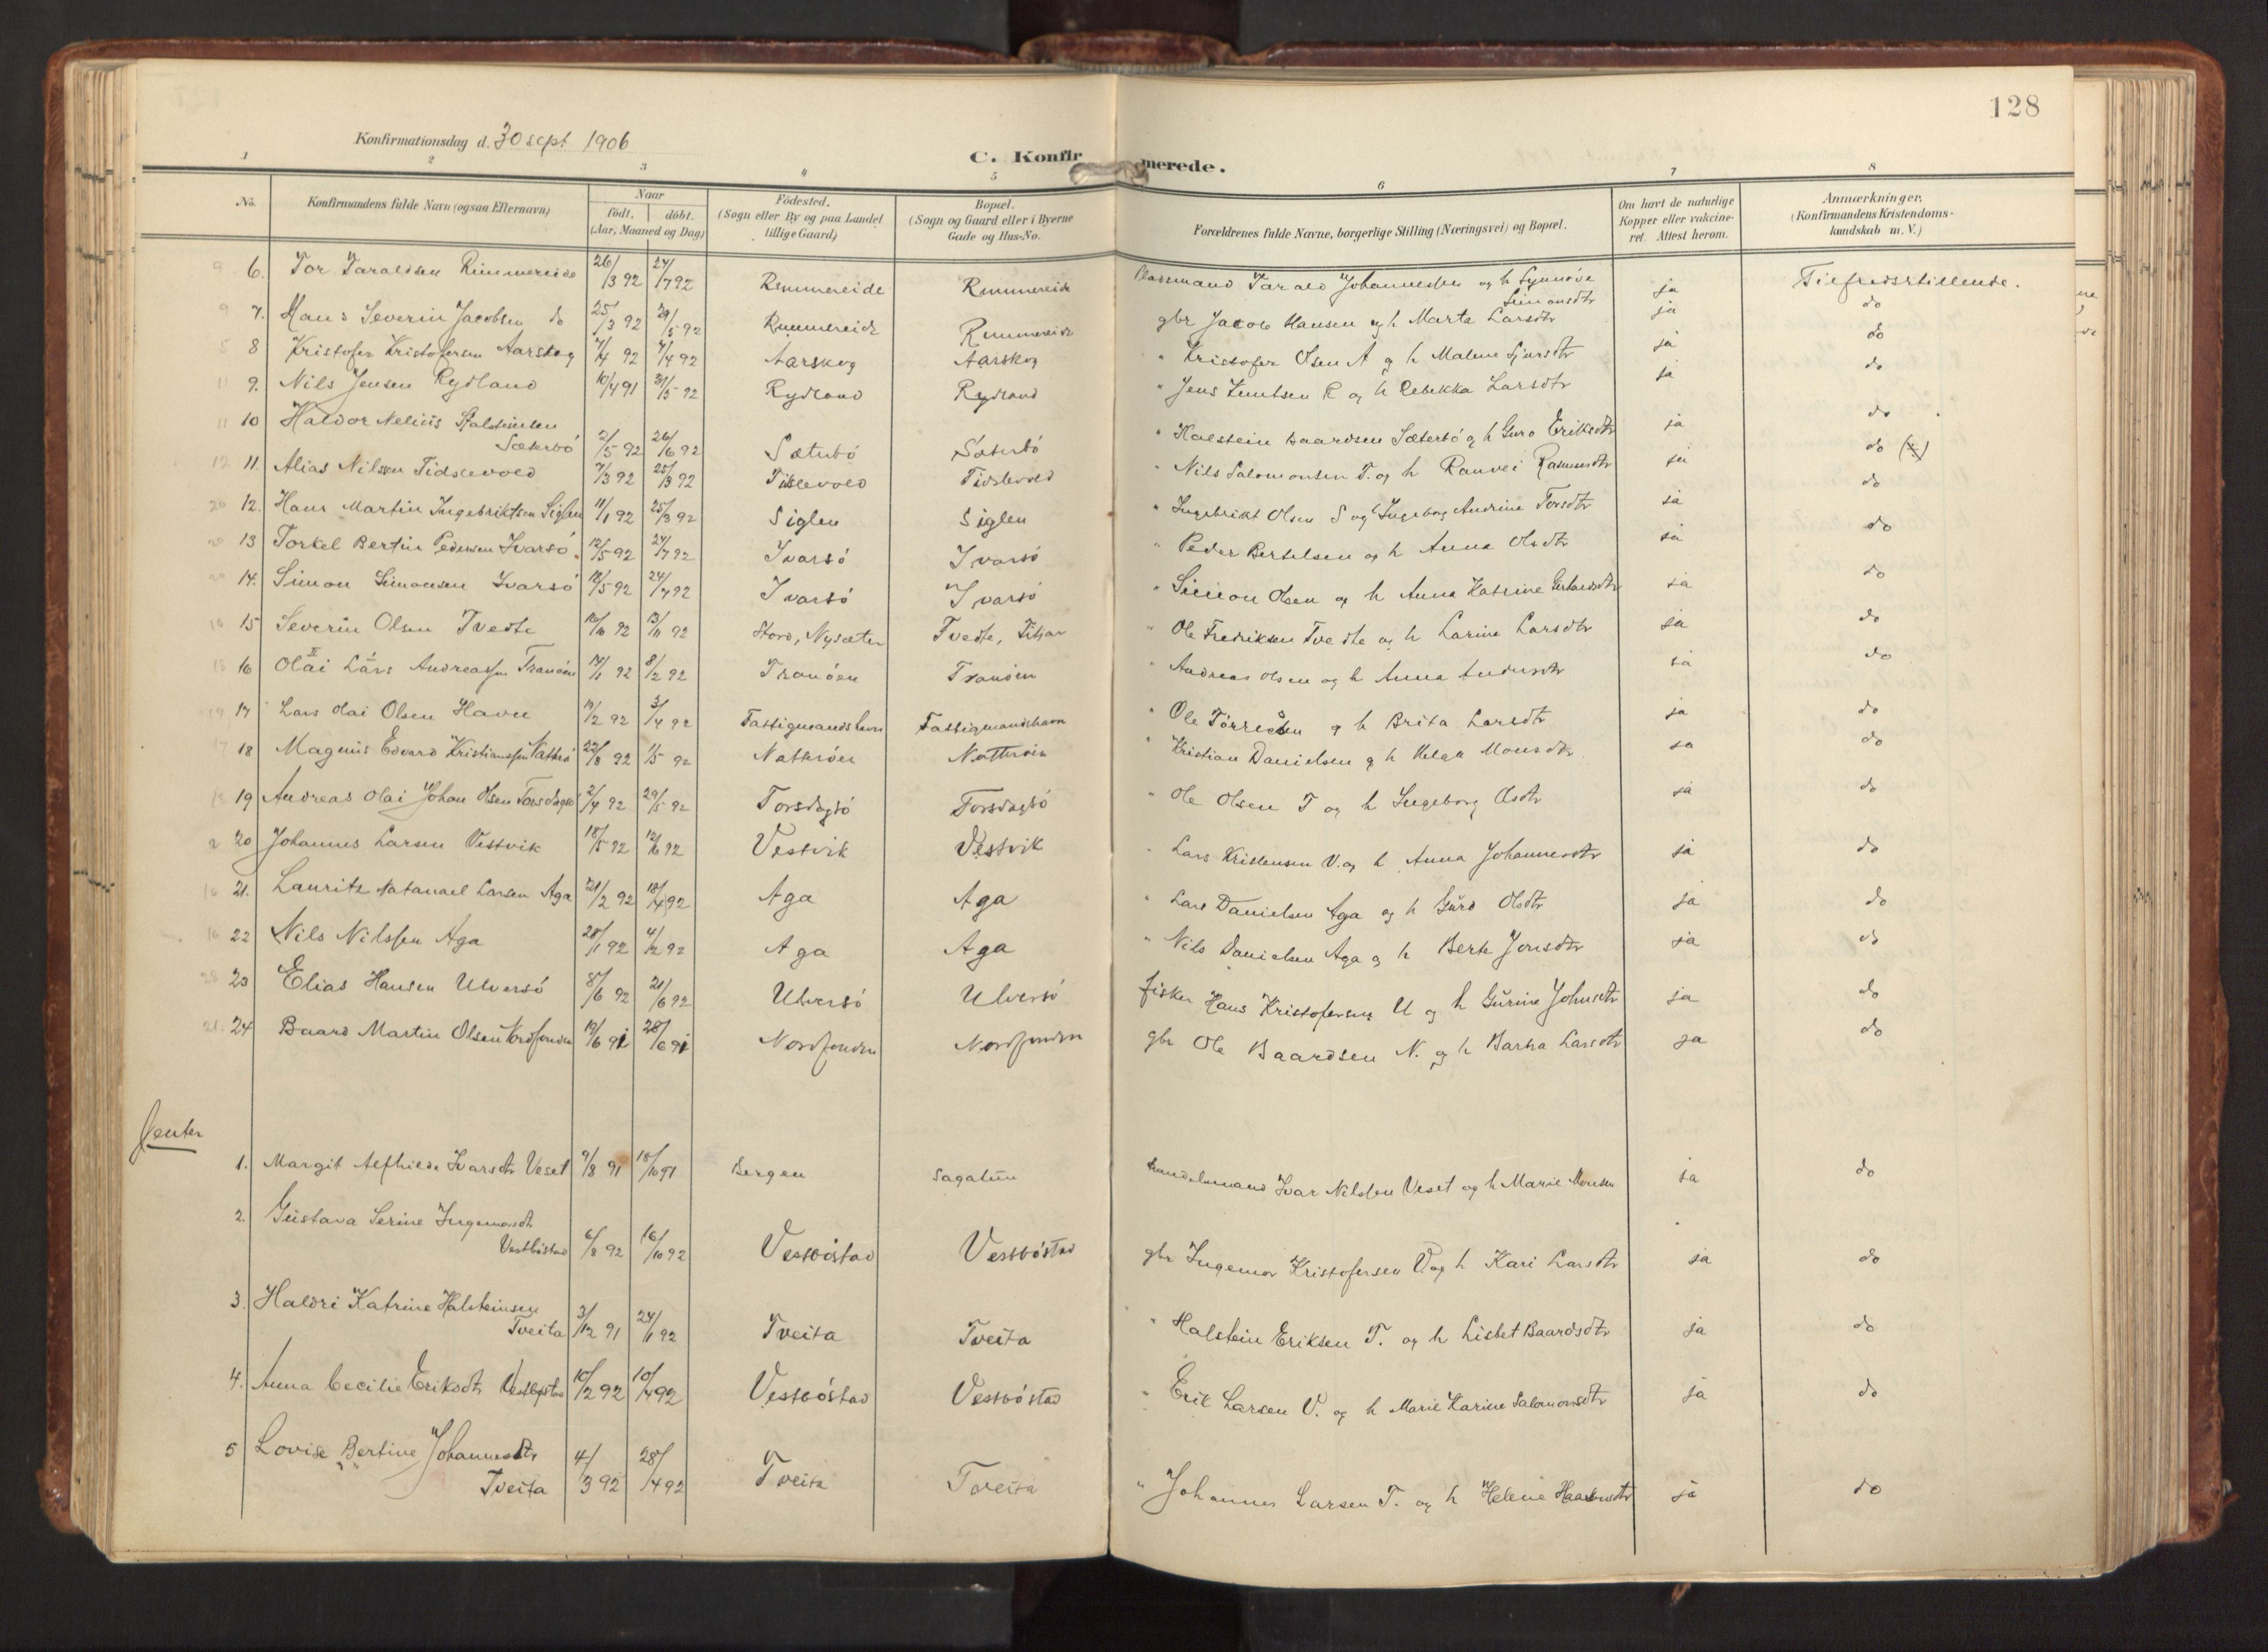 128
Konfirmationsdag d. 30 sept 1906
C. Konfirmerede.
1 2 3 4 5 6 7 8
No. Konfirmandens fulde Navn (ogsaa Efternavn) Naar født. døbt. (Aar, Maaned og Dag) Födested. (Sogn eller By og paa Landet tillige Gaard) Bopæl. (Sogn og Gaard eller i Byerne Gade og Hus-No. Forældrenes fulde Navne, borgerlige Stilling (Næringsvei) og Bopæl. Om havt de naturlige Kopper eller vakcineret. Attest herom. Anmærkninger. (Konfirmandens Kristendomskundskab m. V.)
9 6. Tor Taraldsen Rimmereide 26/3 92 24/7 92 Remmereide Remmereide Pladsmand Tarald Johannessen og h Synnöve Simonsdtr ja Tilfredsstillende.
9 7. Hans Severin Jacobsen do 25/3 92 29/5 92 Remmereide Remmereide gbr Jacob Hansen og h Marta Larsdtr ja do
5 8 Kristofer Kristofersen Aarskog 7/4 92 Aarskog Aarskog " Kristofer Olsen A og h Malene ja do
11 9. Nils Jensen Rydland 10/4 91 31/5 92 Rydland Rydland " Jens Knutsen R og h Rebekka Larsdtr ja do
11 10 Haldor Nelius Halsteinsen
Sæterbö 2/5 92 26/6 92 Sæterbö Sæterbö " Halstein Baardsen Sæterbö og h Guro Eriksdtr ja do
12 11. Alias Nilsen Tidslevold 7/3 92 25/3 92 Tislevold Tidslevold " Nils Salomonsen T. og h Ranvei Rasmusdtr ja do (x)
20 12. Hans Martin Ingebriktsen Siglen 11/1 92 25/3 92 Siglen Siglen " Ingebrikt Olsen S og h Ingeborg Andrine Torsdtr ja do
20 13 Torkel Bertin Pedersen Ivarsö 12/5 92 24/7 92 Ivarsö Ivarsö " Peder Bertelsen og h Anna Olsdtr ja do
20 14. Simon Simonsen Ivarsö 18/5 92 24/7 92 Ivarsö Ivarsö " Simon Olsen og h Anna Katrine ja do
10 15 Severin Olsen Tvedte 10/10 92 13/11 92 Stord, Nysæter Tvedte, Fitjar " Ole Fredriksen Tvedte og h Larine Larsdtr ja do
18 16 Olai Lars Andreassen Tranöen 14/1 92 8/2 92 Tranöen Tranöen " Andreas Olsen og h Anna Andersdtr ja do
19 17 Lars Olai Olsen Havn 19/2 92 3/4 92 Fattigmandshavn Fattigmandshavn " Ole Törresen og h Brita Larsdtr ja do
17 18 Magnus Edvard Kristiansen Natterö 22/3 92 1/5 92 Natteröen Natteröen " Kristian Danielsen og h Helga Monsdtr. ja do
18 19 Andreas Olai Johan Olsen Torsdagsö 2/4 92 29/5 92 Torsdagsö Torsdagsö " Ole Olsen T og h Ingeborg Olsdtr ja do
2 20 Johannes Larsen Vestvik 18/5 92 12/6 92 Vestvik Vestvik " Lars Kristensen V. og h Anna Johannesdtr ja do
16 21. Lauritz Natanael Larsen Aga 21/2 92 18/4 92 Aga Aga " Lars Danielsen Aga og h Guro Olsdtr ja do
16 22 Nils Nilssen Aga 28/1 92 4/12 92 Aga Aga " Nils Danielsen Aga og h Berte Jonsdtr ja do
23 Elias Hansen Ulversö 8/6 92 21/6 92 Ulversö Ulversö fisker Hans Kristofersen U og h Gurine Johnsdtr ja do
21. 24 Baard Martin Olsen Nordfonden 19/6 91 28/6 91 Nordfonden Nordfonden gbr Ole Baardsen N. og h Barta Larsdtr ja do
Jenter
1. Margit Alfhilde Ivarsdtr Veset 9/8 91 18/10 91 Bergen Sagatun handelsmand Ivar Nilssen Veset og h Marie Monsen ja do
2. Gustava Serine Ingemorsdtr
Vestböstad 6/8 92 16/10 92 Vestböstad Vestböstad gbr Ingemor Kristofersen V og h Kari Larsdtr ja do
3. Haldri Katrine Halsteinsen
Tveita 3/12 91 24/1 92 Tveita Tveita " Halstein Eriksen T. og h Lisbet Baardsdtr ja do
4. Anna Cecilie Eriksdtr Vestböstad 10/2 92 10/4 92 Vestböstad Vestböstad " Erik Larsen V. og h Marie Karine Salomonsdtr ja do
5 Lovise Bertine Johannesdtr
Tveita 4/3 92 28/4 92 Tveita Tveita " Johannes Larsen T. og h Helene ja do